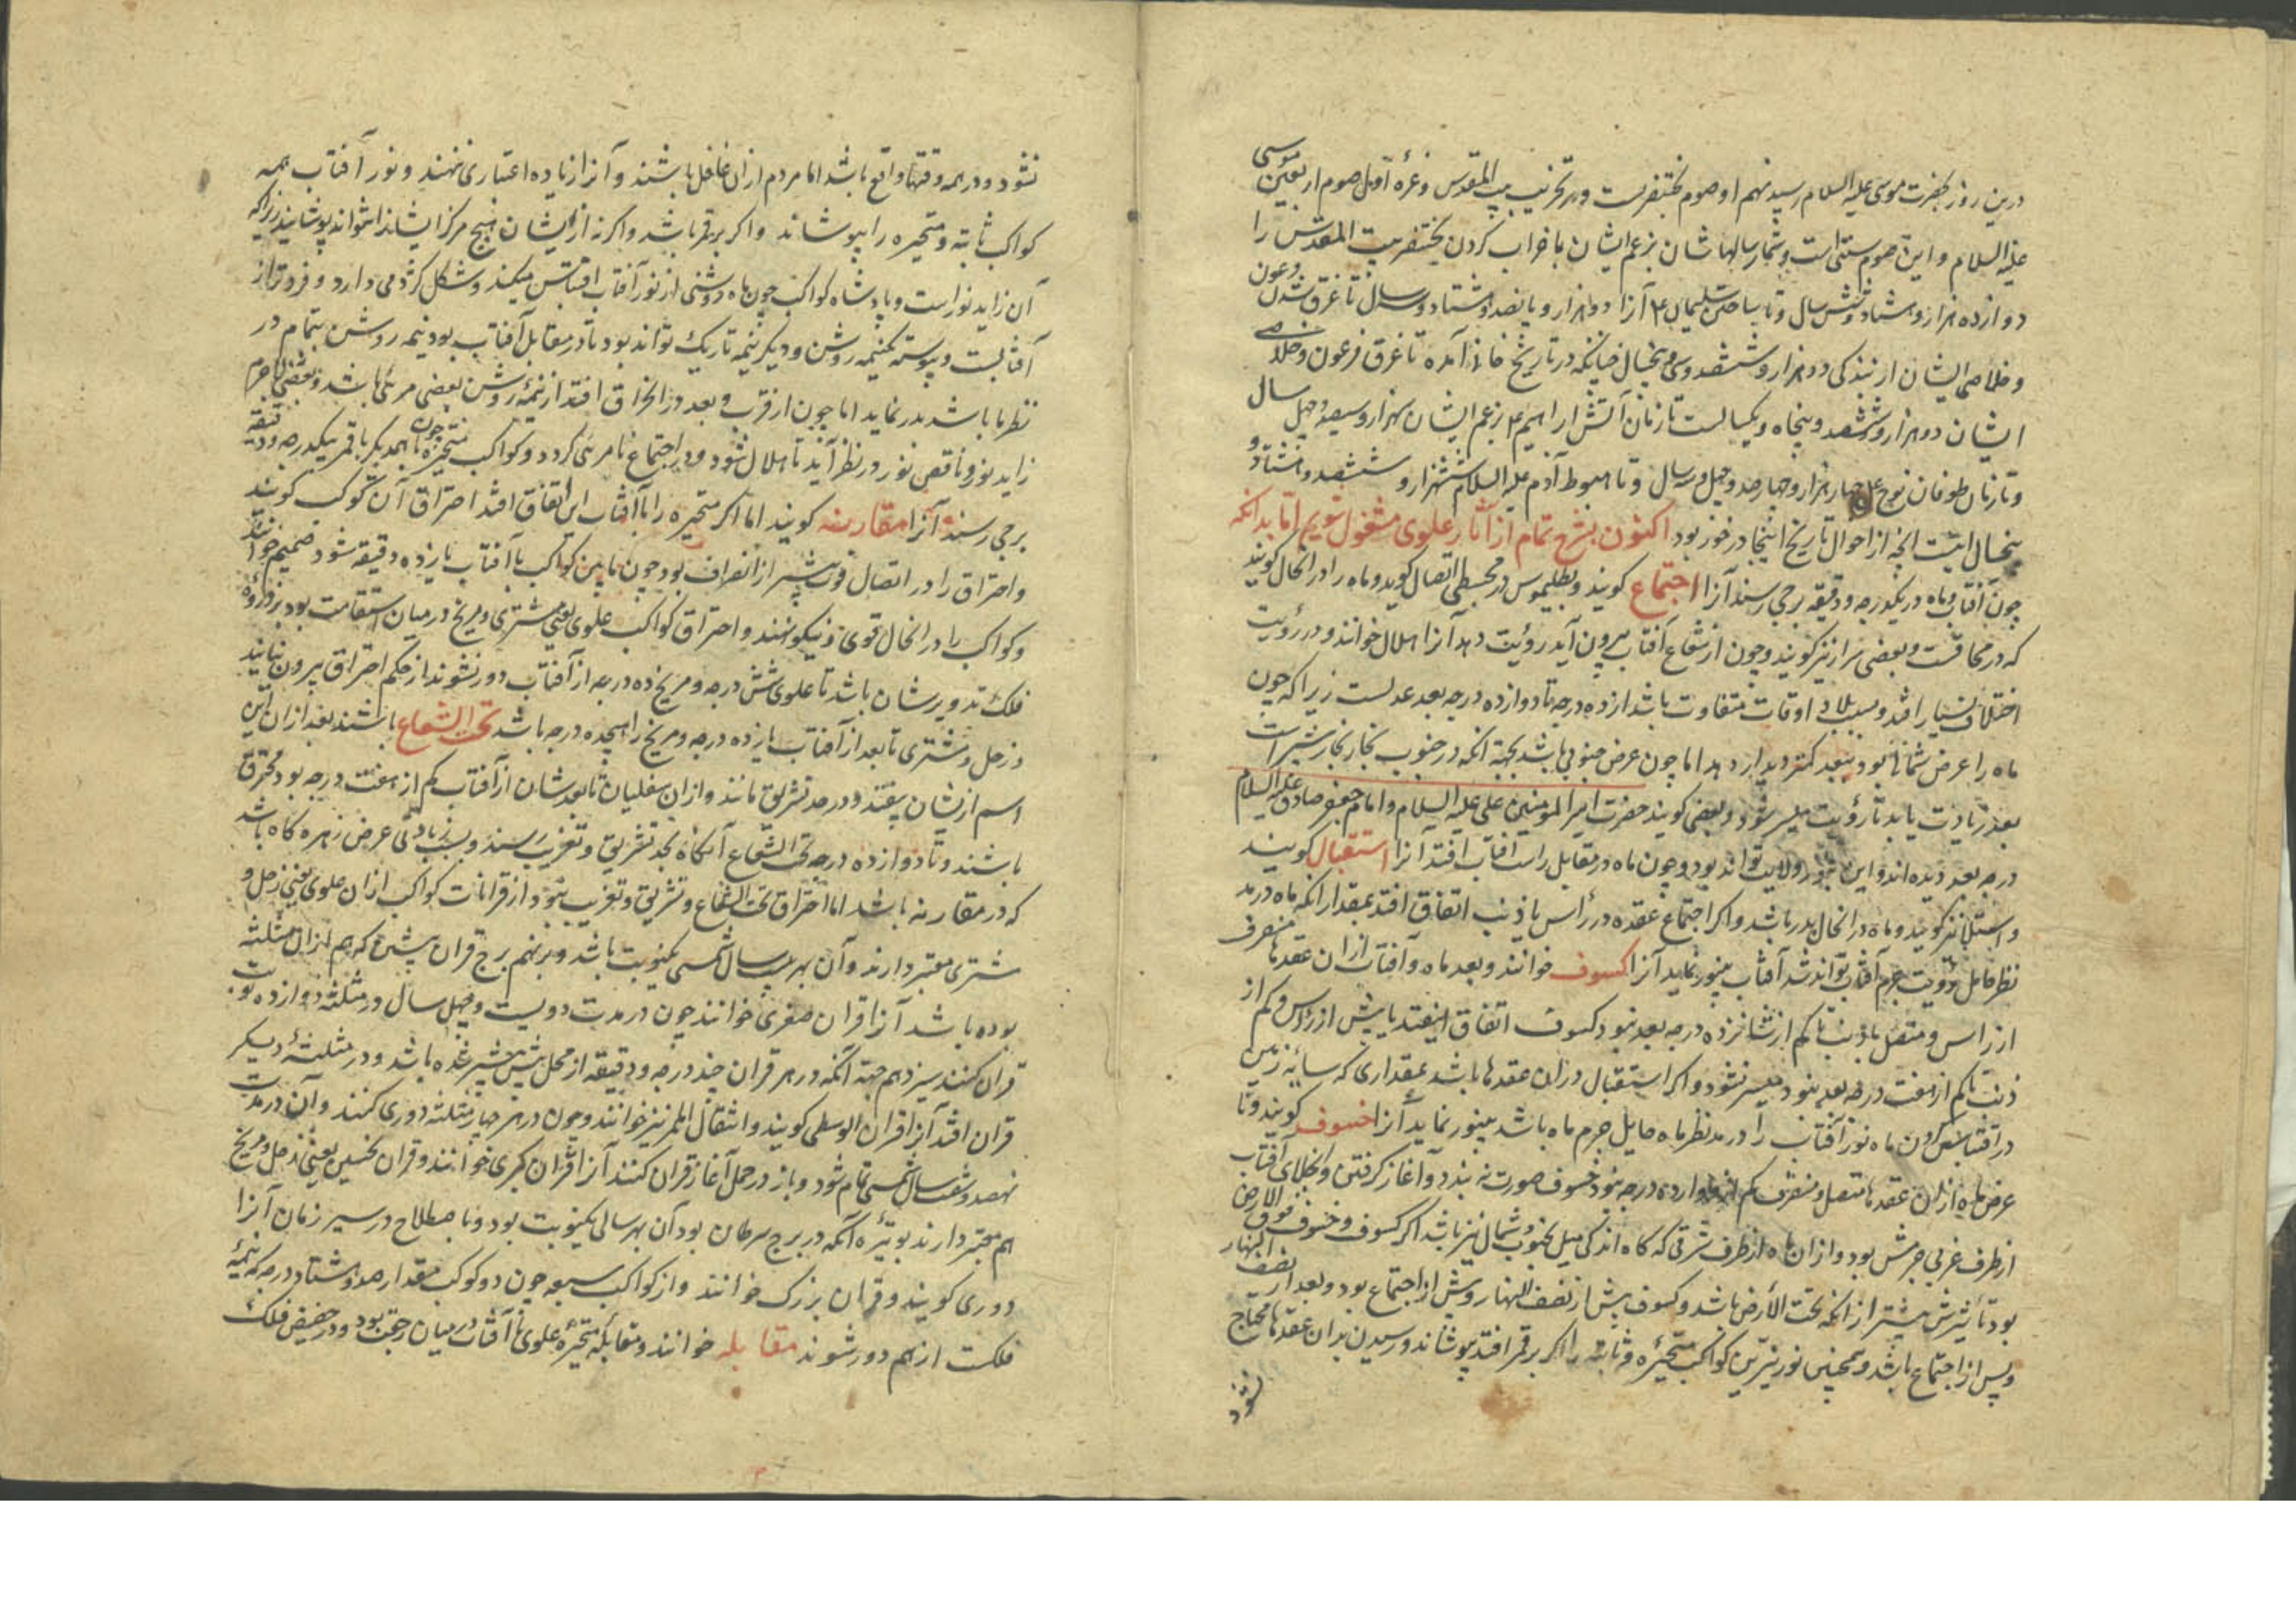 درین روز بحضرت موسی علیه السلام رسید نهم او صوم بختنصرست و در تخریب بیت المقدس و غره اول صوم اربعین موسی
علیه السلام و این صوم سنتی است و شمار سالها شان بزعم ایشان با خراب کردن بختنصر بیت المقدس را
دو از ده هزار و هشتاد و شش سال و تا ساختن سلیمان ع م آنرا دو هزار و پانصد و هشتاد و سال تا غرق شدن فرعون
و خلاصی ایشان از بندکی دو هزار و ششصد و سی و پنجسال چنانکه در تاریخ آمده تا غرق فرعون و خلاصی
ایشان دو هزار و ششصد و پنجاه و یکسالست تا زمان آتش ابراهیم ع م بزعم ایشان سه هزار و سیصد و چهل سال
و تا زمان طوفان نوح ع م چهار هزار و چهار صد و چهل و سه سال و تا هبوط آدم علیه السلام ششهزار و ششصد و هشتاد و
پنجسال اینست آنچه از احوال تاریخ اینجا در خور بود اکنون بشرح تمام از آثار علوی مشغول شویم اما بدانکه
چون آفتاب و ماه در یکدرجه و دقیقه برجی رسند آنرا اجتماع کویند و بطلیموس در مجسطی اتصال کوید و ماه را در آنحال کویند
که در محاقست و بعضی سرار نیز کویند و چون از شعاع آفتاب بیرون آید رؤیت دهد آنرا هلال خوانند و در رؤیت
اختلاف بسیار افتد و بسبب بلاد و اوقات متفاوت باشد از ده درجه تا دوازده درجه بعد عدلست زیرا که چون
ماه را عرض شمالی بود ببعد کمتر دیدار دهد اما چون عرض جنوبی باشد بجهة آنکه در جنوب بخار بیشتر است
بعد زیادت باید تا رؤیت میسر شود و بعضی کویند حضرت امیر المومنین علی علیه السلام و امام جعفر صادق علیه السلام
درجه بعد دیده اند و این بنور ولایت تواند بود و چون ماه در مقابل راست آفتاب افتد آنرا استقبال کویند
و امتلا نیز کویند و ماه در آنحال بدر باشد و اکر اجتماع عقده در رأس یا ذنب اتفاق افتد بمقدار آنکه ماه در مد
نظر حایل رؤیت جرم آفتاب تواند شد آفتاب بینور نماید آنرا کسوف خوانند و بعد ماه و آفتاب از آن عقد ها منصرف
از رأس و متصل باذنب تا کم از شانزده درجه بعد نبود کسوف اتفاق نیفتد یا بیش از رأس و کم از
ذنب تا کم از هفت درجه بعد نبود میسر نشود و اکر استقبال در آن عقدها باشد بمقداری که سایه زمین
در اقتباس کردن ماه نور آفتاب را در مد نظر ماه حایل جرم ماه باشد بینور نماید آنرا خسوف کویند و تا
عرض ماه از آن عقدها متصل و منصرف کم از دوازده درجه نبود خسوف صورت نه بندد و آغاز کرفتن و انجلای آفتاب
از طرف غربی جرمش بود و از آن ماه از طرف شرقی که کاه اندکی میل بجنوب و شمال نیز باشد اکر کسوف و خسوف فوق الارض
بود تأثیرش بیشتر از آنکه تحت الأرض باشد و کسوف پیش از نصف النهار و پیش از اجتماع بود و بعد از نصف النهار
و پس از اجتماع باشد و همچنین نور نیرین کواکب متحیره و ثابته را اکر برقمر افتد بپوشاند و رسیدن بدان عقدها محتاج
نشود
نشود و در همه وقتها واقع باشد اما مردم از آن غافل باشند و آنرا زیاده اعتباری ننهند و نور آفتاب همه
کواکب ثابته و متحیره را بپوشاند و اکر برقمر باشد و اکر نه از ایشان هیچ مرکز ایشانرا نتواند پوشانید زیرا که
آن زاید نور است و پادشاه کواکب چون ماه روشنی از نور آفتاب اقتباس میکند و شکل کژدمی دارد و فروتر از
آفتابست و پیوسته یکنیمه روشن و دیکر نیمه تاریک تواند بود تا در مقابل آفتاب بود نیمه روشن بتمام در
نظر ما باشد بدر نماید اما چون از قرب و بعد در انحراق افتد از نیمه روشن بعضی مرئی باشد و بعضی لاجرم
زاید نور و ناقص نور در نظر آید تا هلال شود و در اجتماع نامرئی کردد و کواکب متحیره چون با همدیکر یا قمر بیکدرجه و دقیقه
برجی رسند آنرا مقارنه کویند اما اکر متحیره را با آفتاب این اتفاق افتد احتراق آن کوکب کویند
و احتراق را در اتصال قوت بیشتر از انصراف بود چون مابین کواکب با آفتاب یازده دقیقه شود صمیم خوانند
و کواکب را در آنحال قوی و نیکو نهند و احتراق کواکب علوی یعنی مشتری و مریخ در میان استقامت بود بر ذروه
فلک تدویرشان باشد تا علوی شش درجه و مریخ ده درجه از آفتاب دور نشوند از حکم احتراق بیرون نیایند
و زحل و مشتری تا بعد از آفتاب یازده درجه و مریخ را هیجده درجه باشد تحت الشعاع باشند بعد از آن این
اسم از یشان بیفتد و در حد تشریق مانند و از آن سفلیان تا بعد شان از آفتاب کم از هفت درجه بود محترق
باشند و تا دوازده درجه تحت الشعاع آنکاه بحد تشریق و تغریب رسند و بسبب زیادتی عرض زهره کاه باشد
که در مقارنه باشد اما احتراق تحت الشعاع و تشریق و تغریب نبود از قرانات کواکب از آن علوی یعنی زحل و
مشتری معتبر دارند و آن بهر بیست سال شمسی یکنوبت باشد و بر نهم برج قران پیشین که هم از آن مثلثه
بوده باشد آنرا قران صغری خوانند چون در مدت دویست و چهل سال در مثلثه دوازده نوبت
قران کنند سیزدهم جهة آنکه در هر قران چند درجه و دقیقه از محل پیش پیشتر شده باشد و در مثلثه دیکر
قران افتد آنرا قران الوسطی کویند و انتقال الممر نیز خوانند و چون در هر چهار مثلثه دوری کنند و آن در مدت
نهصد و شصت سال شمسی تمام شود و باز در حمل آغاز قران کنند آنرا قران کبری خوانند و قران نحسین یعنی زحل و مریخ
هم معتبر دارند بوتیره آنکه در برج سرطان بود آن بهر سالی یکنوبت بود و باصطلاح در سیر زمان آنرا
دوری کویند و قران بزرک خوانند و از کواکب سبعه چون دو کوکب مقدار صد و هشتاد درجه که نیمه
فلکست از هم دور شوند مقابله خوانند و مقابله متحیره علوی با آفتاب در میان رجعت بود و در حضیض فلک